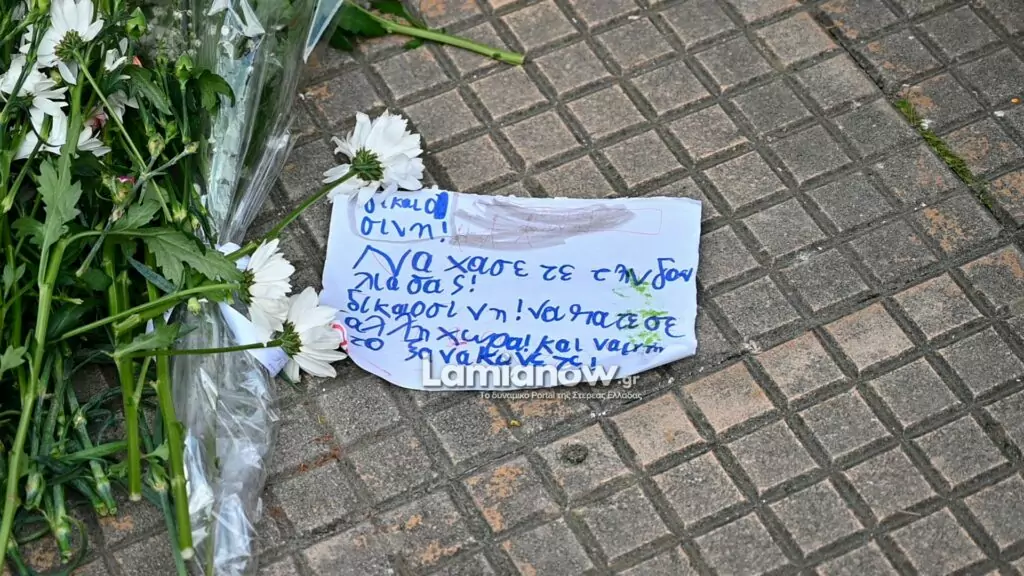 δικαιο
σινη!
Να χασε τε την δου
λια σας!
δικαρσινη! να πατε σε
αλλη χωρα! και να μην
το ξανα κανετε!
LamiaNow.gr
Το δυναμικό Portal της Στερεάς Ελλάδας